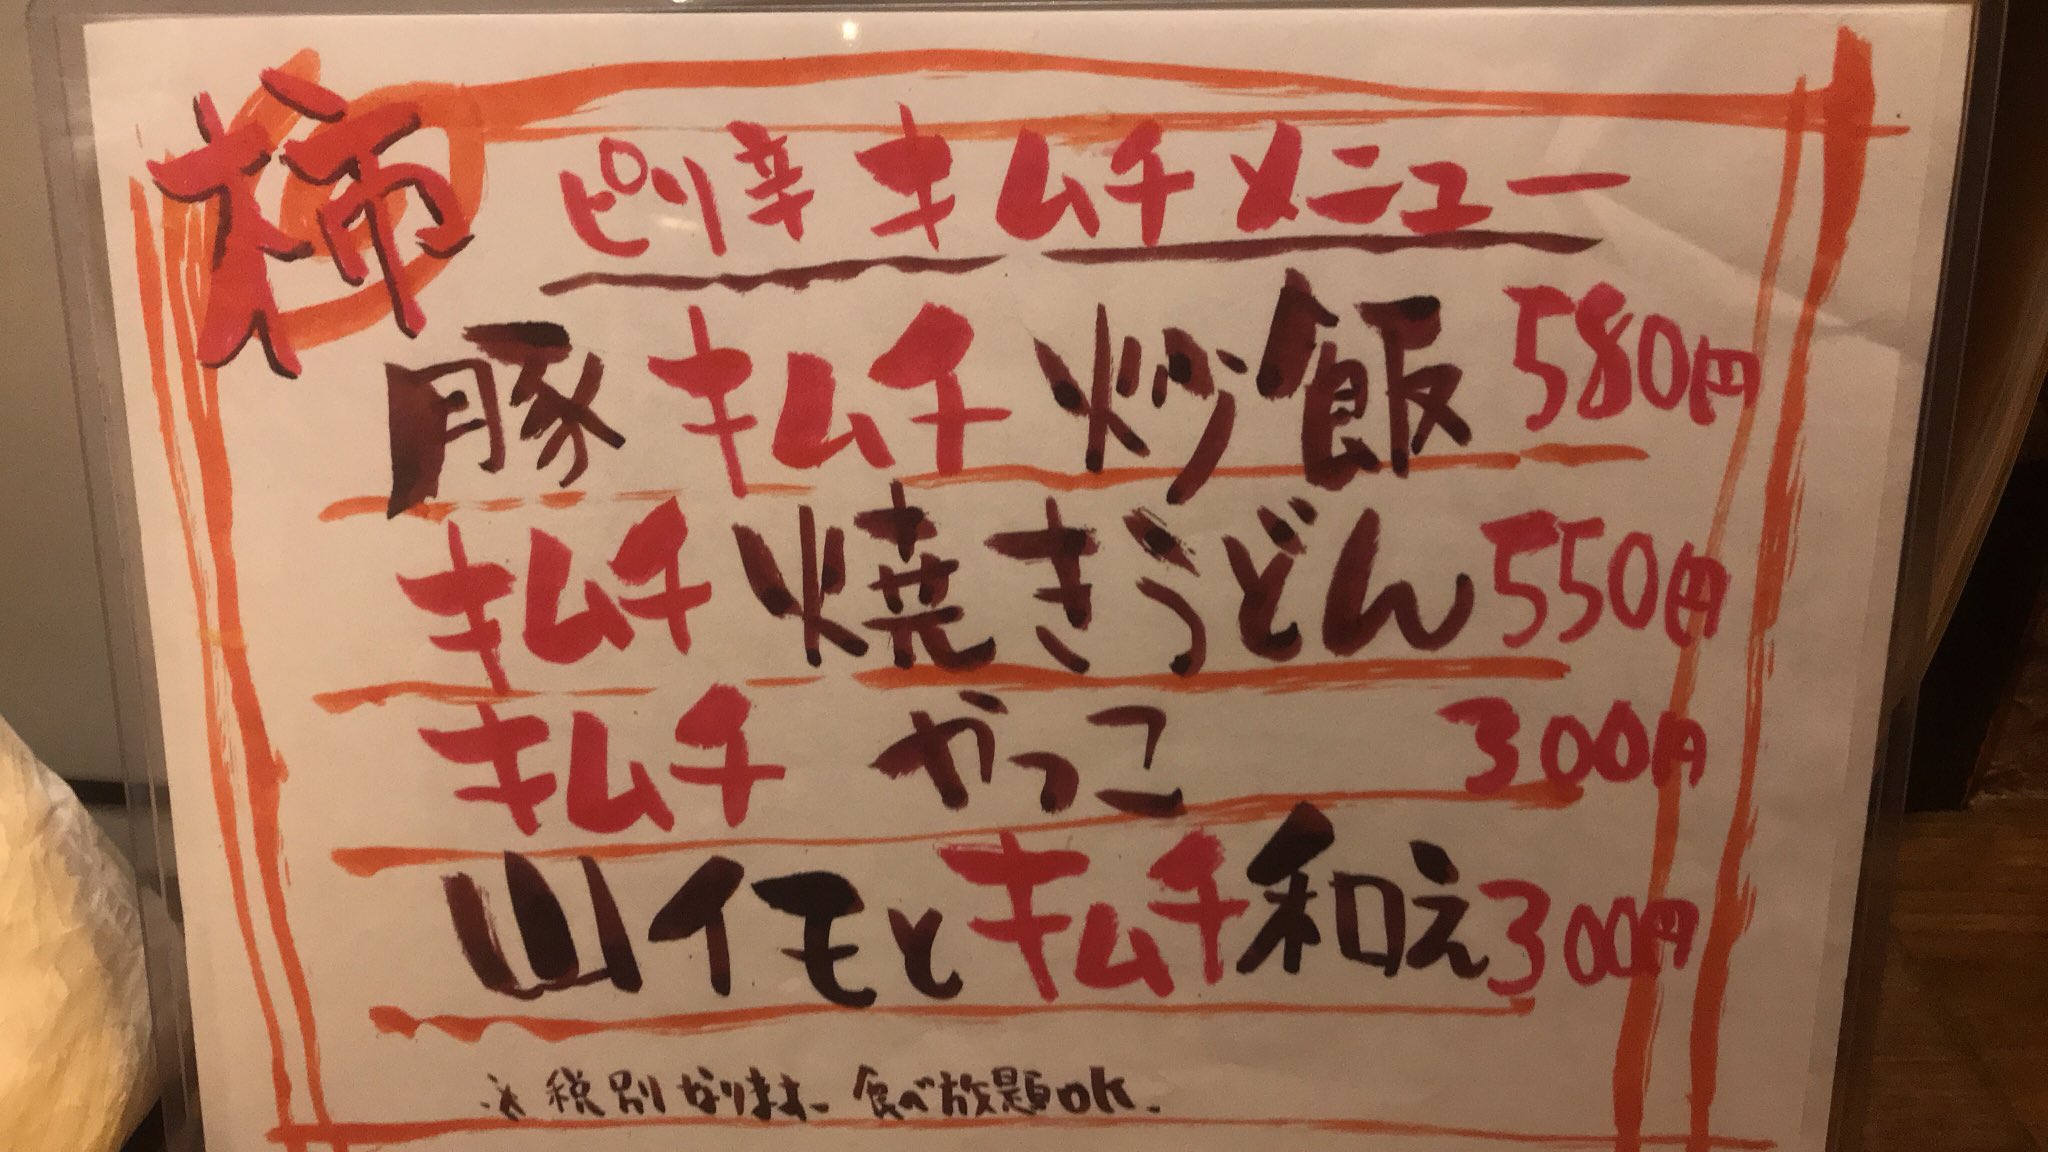 柿
ピリ辛キムチメニュー
豚キムチ炒飯 580円
キムチ焼きうどん 550円
キムチやっこ 300円
山イモとキムチ和え 300円
※税別なります。食べ放題OK.